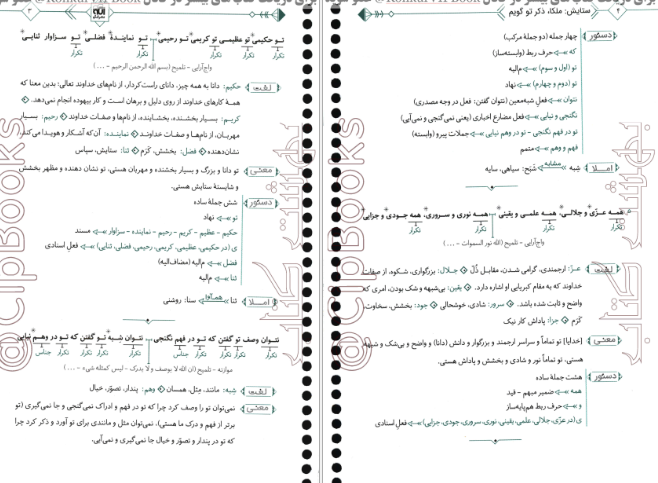 ۳
تو حکیمی تو عظیمی تو کریمی تو رحیمی تو نماینده فضلی تو سزاوار ثنایی
تکرار تکرار تکرار تکرار تکرار
واج‌آرایی - تلمیح (بسم الله الرحمن الرحیم - ...)
لغت حکیم: دانا به همه چیز، دانای راست‌کردار، از نام‌های خداوند تعالی؛ بدین معنا که
همهٔ کارهای خداوند از روی دلیل و برهان است و کار بیهوده انجام نمی‌دهد.
کریم: بسیار بخشنده، بخشاینده، از نام‌ها و صفات خداوند رحیم: بسیار
مهربان، از نام‌ها و صفات خداوند نماینده: آن‌که آشکار و هویدا می‌کند،
نشان‌دهنده فضل: بخشش، کَرَم ثنا: ستایش، سپاس
معنی تو دانا و بزرگ و بسیار بخشنده و مهربان هستی، تو نشان دهنده و مظهر بخشش
و شایستهٔ ستایش هستی.
دستور شش جملهٔ ساده
تو نهاد
حکیم - عظیم - کریم - رحیم - نماینده - سزاوار مسند
ی (در حکیمی، عظیمی، کریمی، رحیمی، فضلی، ثنایی) فعل اسنادی
فضل م‌الیه (مضاف‌الیه)
ثنا م‌الیه
املا ثنا هم‌آوا سنا: روشنی
نتوان وصف تو گفتن که تو در فهم نگنجی نتوان شبه تو گفتن که تو در وهم نیایی
تکرار تکرار تکرار جناس تکرار تکرار تکرار جناس
موازنه - تلمیح (ان الله لا یوصف ولا یدرک - لیس کمثله شیء - ...)
لغت شبه: مانند، مِثل، همسان وهم: پندار، تصوّر، خیال
معنی نمی‌توان تو را وصف کرد چرا که تو در فهم و ادراک نمی‌گنجی و جا نمی‌گیری (تو
برتر از فهم و درک ما هستی). نمی‌توان مثل و مانندی برای تو آورد و ذکر کرد چرا
که تو در پندار و تصوّر و خیال جا نمی‌گیری و نمی‌آیی.
۴ ستایش: ملکا، ذکر تو گویم
دستور چهار جمله (دو جملهٔ مرکب)
که حرف ربط (وابسته‌ساز)
تو (اول و سوم) م‌الیه
تو (دوم و چهارم) نهاد
نتوان فعل شبه‌معین (نتوان گفتن: فعل در وجه مصدری)
نگنجی و نیایی فعل مضارع اخباری (یعنی نمی‌گنجی و نمی‌آیی)
تو در فهم نگنجی - تو در وهم نیایی جملات پیرو (وابسته)
فهم و وهم متمم
املا شبه مشابه شَبَح: سیاهی، سایه
همه عزّی و جلالی، همه علمی و یقینی همه نوری و سروری، همه جودی و جزایی
تکرار تکرار تکرار تکرار
واج‌آرایی - تلمیح (الله نور السموات - ...)
لغت عزّ: ارجمندی، گرامی شدن، مقابل ذُل جلال: بزرگواری، شکوه، از صفات
خداوند که به مقام کبریایی او اشاره دارد. یقین: بی‌شبهه و شک بودن، امری که
واضح و ثابت شده باشد. سرور: شادی، خوشحالی جود: بخشش، سخاوت،
کَرَم جزا: پاداش کار نیک
معنی (خدایا) تو تماماً و سراسر ارجمند و بزرگوار و دانش (دانا) و واضح و بی‌شک و شبهه
هستی. تو تماماً نور و شادی و بخشش و پاداش هستی.
دستور هشت جملهٔ ساده
همه ضمیر مبهم - قید
و حرف ربط هم‌پایه‌ساز
ی (در عزّی، جلالی، علمی، یقینی، نوری، سروری، جودی، جزایی) فعل اسنادی
@ClipBooks
@ClipBooks